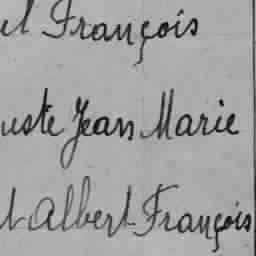 el François
uste Jean Marie
t Albert François